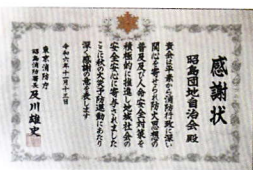 感謝状
昭島団地自治会殿
貴会は平素から消防行政に深い
関心を寄せられ防火思想の
普及及び人命安全対策を
積極的に推進し地域社会の
安全安心に寄与されました
ここに秋の火災予防運動にあたり
深く感謝の意を表します
令和六年十一月十三日
東京消防庁
昭島消防署長 及川雄史